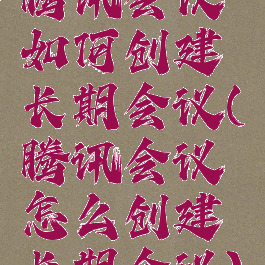 腾讯会议
如何创建
长期会议(
腾讯会议
怎么创建
长期会议)